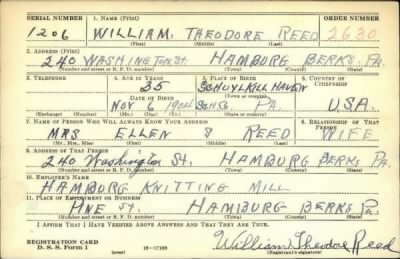 SERIAL NUMBER 1. NAME (Print) ORDER NUMBER
1206 WILLIAM THEODORE REED 2630
(First) (Middle) (Last)
2. ADDRESS (Print)
240 WASHINGTON ST. HAMBURG BERKS. PA.
(Number and street or R. F. D. number) (Town) (County) (State)
3. TELEPHONE 4. AGE IN YEARS 5. PLACE OF BIRTH 6. COUNTRY OF CITIZENSHIP
35 SCHUYLKILL HAVEN
DATE OF BIRTH (Town or county)
NOV 6 1904 PA. U.S.A.
(Exchange) (Number) (Mo.) (Day) (Yr.) (State or country)
7. NAME OF PERSON WHO WILL ALWAYS KNOW YOUR ADDRESS 8. RELATIONSHIP OF THAT PERSON
MRS ELLEN S REED WIFE
(Mr., Mrs., Miss) (First) (Middle) (Last)
9. ADDRESS OF THAT PERSON
240 Washington St. HAMBURG BERKS PA.
(Number and street or R. F. D. number) (Town) (County) (State)
10. EMPLOYER'S NAME
HAMBURG KNITTING MILL
11. PLACE OF EMPLOYMENT OR BUSINESS
PINE ST. HAMBURG BERKS PA.
(Number and street or R. F. D. number) (Town) (County) (State)
I AFFIRM THAT I HAVE VERIFIED ABOVE ANSWERS AND THAT THEY ARE TRUE.
REGISTRATION CARD
D. S. S. Form 1 (over) 16—17105 William Theodore Reed
(Registrant's signature)